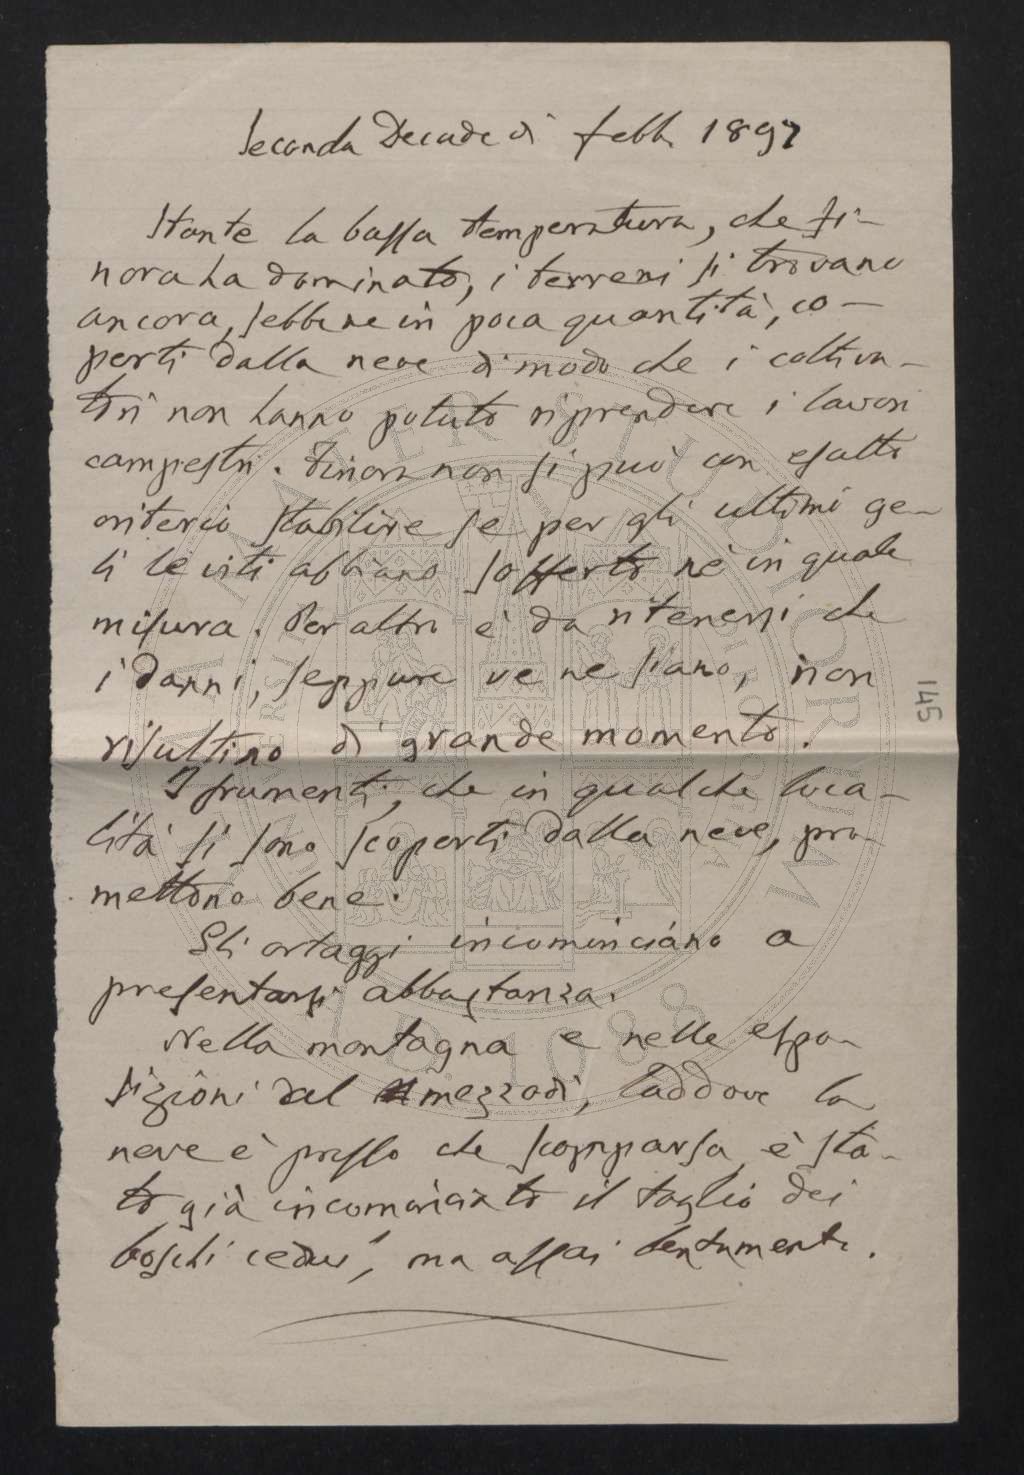 Seconda Decade di febb. 1897
Stante la bassa temperatura, che fi-
nora ha dominato, i terreni si trovano
ancora, sebbene in poca quantità, co-
perti dalla neve di modo che i coltiva-
tori non hanno potuto riprendere i lavori
campestri. Finora non si può con esatto
criterio stabilire se per gli ultimi ge-
li le viti abbiano sofferto nè in quale
misura. Per altro è da ritenersi che
i danni, seppure ve ne siano, non
risultino di grande momento.
I frumenti, che in qualche loca-
lità si sono scoperti dalla neve, pro-
mettono bene.
Gli ortaggi incominciano a
presentarsi abbastanza.
Nella montagna e nelle espo-
sizioni del mezzodì, laddove la
neve è presso che scomparsa è sta-
to già incominciato il taglio dei
boschi cedui, ma assai lentamente.
145
ALMA MATER STUDIORUM
A.D. 1088